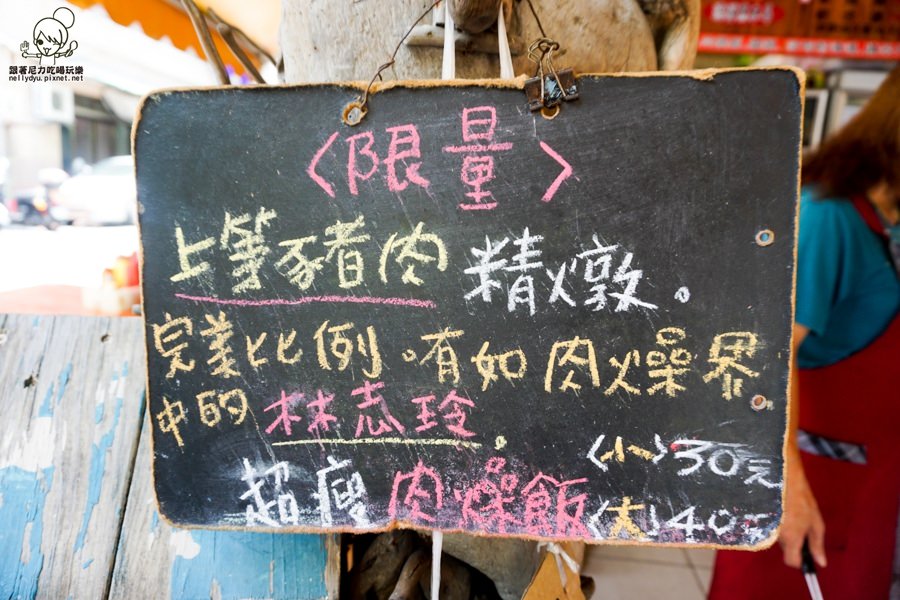 跟著尼力吃喝玩樂
nellydyu.pixnet.net
〈限量〉
上等豬肉 精燉。
完美比例。有如肉燥界
中的林志玲。
超瘦肉燥飯
〈小〉30元
〈大〉40元